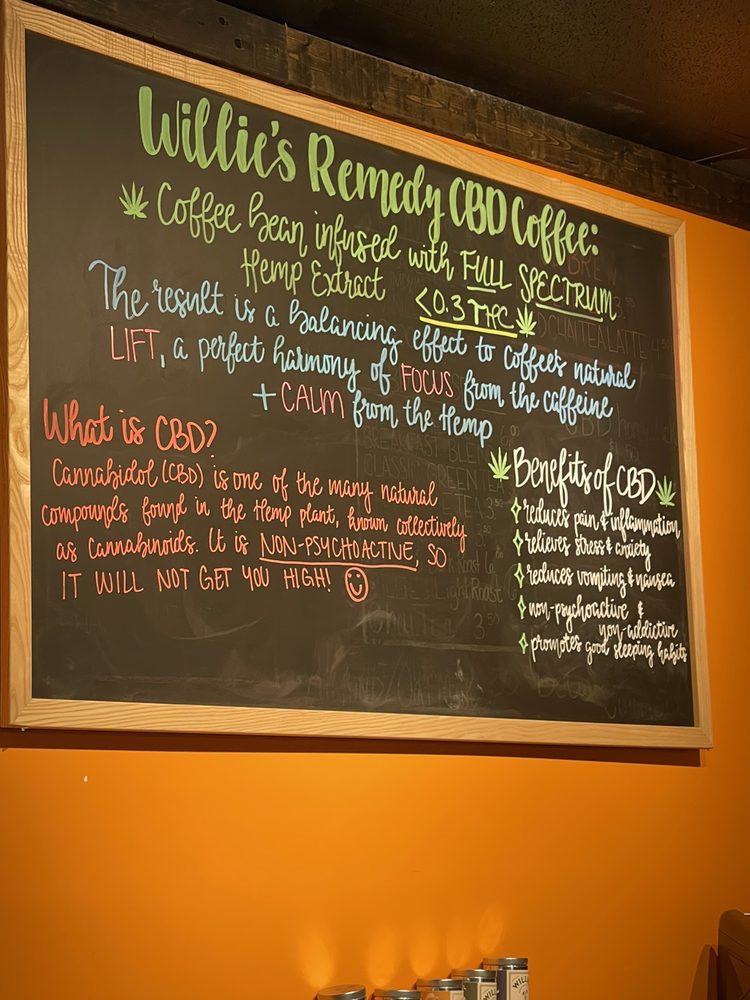 Willie's Remedy CBD Coffee:
Coffee bean infused with FULL SPECTRUM
Hemp Extract <0.3 THC
The result is a balancing effect to coffee's natural
LIFT, a perfect harmony of FOCUS from the caffeine
+ CALM from the Hemp
What is CBD?
Cannabidol (CBD) is one of the many natural
compounds found in the Hemp plant, known collectively
as Cannabinoids. It is NON-PSYCHOACTIVE, SO
IT WILL NOT GET YOU HIGH!
Benefits of CBD
reduces pain & inflammation
relieves stress & anxiety
reduces vomiting & nausea
non-psychoactive &
non-addictive
promotes good sleeping habits